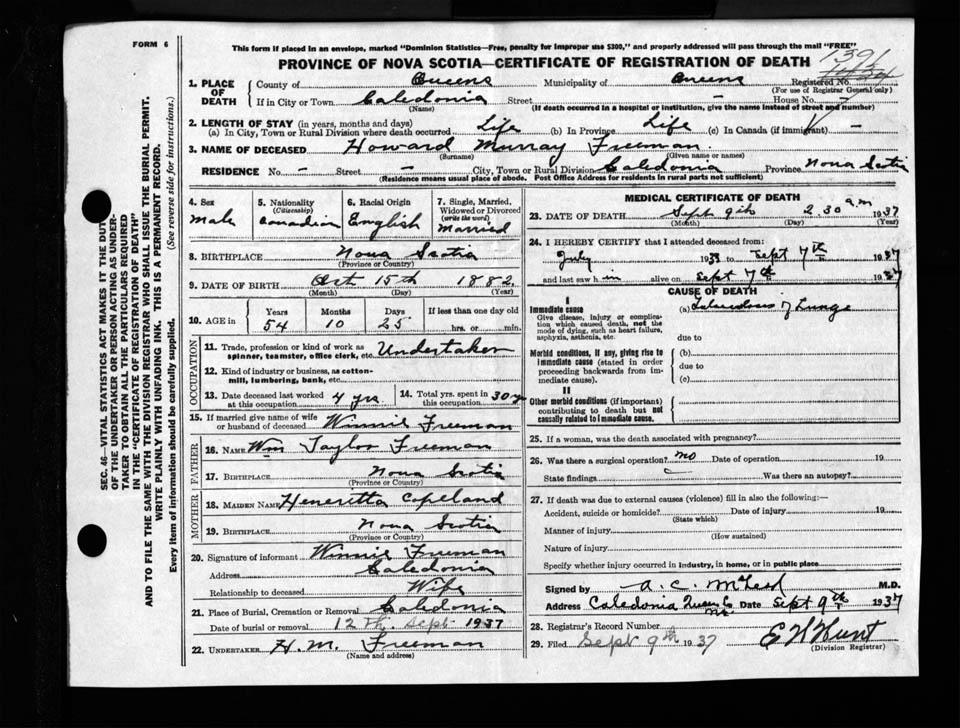 FORM 6
This form if placed in an envelope, marked "Dominion Statistics—Free, penalty for improper use $300," and properly addressed will pass through the mail "FREE"
PROVINCE OF NOVA SCOTIA—CERTIFICATE OF REGISTRATION OF DEATH
1. PLACE OF DEATH
County of Queens Municipality of Queens Registered No.
(For use of Registrar General only)
If in City or Town Caledonia Street — House No.
(Name) (If death occurred in a hospital or institution, give the name instead of street and number)
2. LENGTH OF STAY (in years, months and days)
(a) In City, Town or Rural Division where death occurred Life (b) In Province Life (c) In Canada (if immigrant) —
3. NAME OF DECEASED Howard Murray Freeman
(Surname) (Given name or names)
RESIDENCE No. — Street — City, Town or Rural Division Caledonia Province Nova Scotia
(Residence means usual place of abode. Post Office Address for residents in rural parts not sufficient)
4. Sex Male
5. Nationality (Citizenship) Canadian
6. Racial Origin English
7. Single, Married, Widowed or Divorced (write the word) Married
8. BIRTHPLACE Nova Scotia
(Province or Country)
9. DATE OF BIRTH Oct 15th 1882
(Month) (Day) (Year)
10. AGE in Years Months Days If less than one day old
54 10 25 hrs. or min.
OCCUPATION
11. Trade, profession or kind of work as spinner, teamster, office clerk, etc. Undertaker
12. Kind of industry or business, as cotton-mill, lumbering, bank, etc.
13. Date deceased last worked at this occupation 4 yrs
14. Total yrs. spent in this occupation 30
15. If married give name of wife or husband of deceased Winnie Freeman
FATHER
16. NAME Wm Taylor Freeman
17. BIRTHPLACE Nova Scotia
(Province or Country)
MOTHER
18. MAIDEN NAME Heneritta Copeland
19. BIRTHPLACE Nova Scotia
(Province or Country)
20. Signature of informant Winnie Freeman
Address Caledonia
Relationship to deceased Wife
21. Place of Burial, Cremation or Removal Caledonia
Date of burial or removal 12 Th. Sept 1937
22. UNDERTAKER H. M. Freeman
(Name and address)
MEDICAL CERTIFICATE OF DEATH
23. DATE OF DEATH Sept 9th 2.30 a.m 1937
(Month) (Day) (Year)
24. I HEREBY CERTIFY that I attended deceased from:
July 1933 to Sept 7th 1937
and last saw h im alive on Sept 7th 1937
CAUSE OF DEATH
I
Immediate cause
Give disease, injury or complication which caused death, not the mode of dying, such as heart failure, asphyxia, asthenia, etc.
(a) Tuberculosis of Lungs
due to
Morbid conditions, if any, giving rise to immediate cause (stated in order proceeding backwards from immediate cause).
(b)
due to
(c)
II
Other morbid conditions (if important) contributing to death but not causally related to immediate cause.
25. If a woman, was the death associated with pregnancy?
26. Was there a surgical operation? no Date of operation 19
State findings Was there an autopsy?
27. If death was due to external causes (violence) fill in also the following:—
Accident, suicide or homicide? Date of injury 19
(State which)
Manner of injury
(How sustained)
Nature of injury
Specify whether injury occurred in Industry, in home, or in public place
Signed by A. C. McLeod M.D.
Address Caledonia Queens Co Date Sept 9th 1937
28. Registrar's Record Number
29. Filed Sept 9th 1937 E H Hunt
(Division Registrar)
SEC. 46—VITAL STATISTICS ACT MAKES IT THE DUTY
OF THE UNDERTAKER OR PERSON ACTING AS UNDER-
TAKER TO OBTAIN ALL THE PARTICULARS REQUIRED
IN THE "CERTIFICATE OF REGISTRATION OF DEATH"
AND TO FILE THE SAME WITH THE DIVISION REGISTRAR WHO SHALL ISSUE THE BURIAL PERMIT.
WRITE PLAINLY WITH UNFADING INK. THIS IS A PERMANENT RECORD.
Every item of information should be carefully supplied. (See reverse side for instructions.)